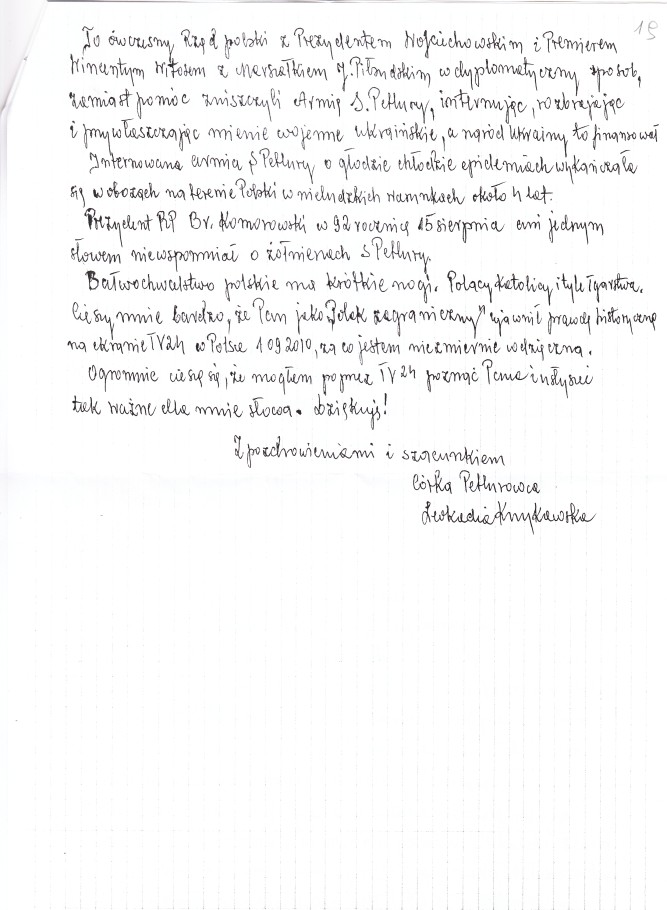 19
To ówczesny Rząd polski z Prezydentem Wojciechowskim i Premierem
Wincentym Witosem z Marszałkiem J. Piłsudskim w dyplomatyczny sposób,
zamiast pomóc zniszczyli Armię S. Petlury, internując, rozbrajając
i przywłaszczając mienie wojenne ukraińskie, a naród Ukrainy to finansował
Internowana armia S Petlury o głodzie chłodzie epidemiach wykańczała
się w obozach na terenie Polski w nieludzkich warunkach około 4 lat.
Prezydent RP Br. Komorowski w 92 rocznicę 15 sierpnia ani jednym
słowem niewspomniał o żołnierzach S Petlury.
Bałwochwalstwo polskie ma krótkie nogi. Polacy Katolicy i tyle łgarstwa.
Cieszy mnie bardzo, że Pan jako "Polak zagraniczny" ujawnił prawdę historyczną
na ekranie TV24 w Polsce 1 09 2010, za co jestem niezmiernie wdzięczna.
Ogromnie cieszę się, że mogłam poprzez TV 24 poznać Pana i usłyszeć
tak ważne dla mnie słowa. Dziękuję!
Z pozdrowieniami i szacunkiem
Córka Petlurowca
Leokadia